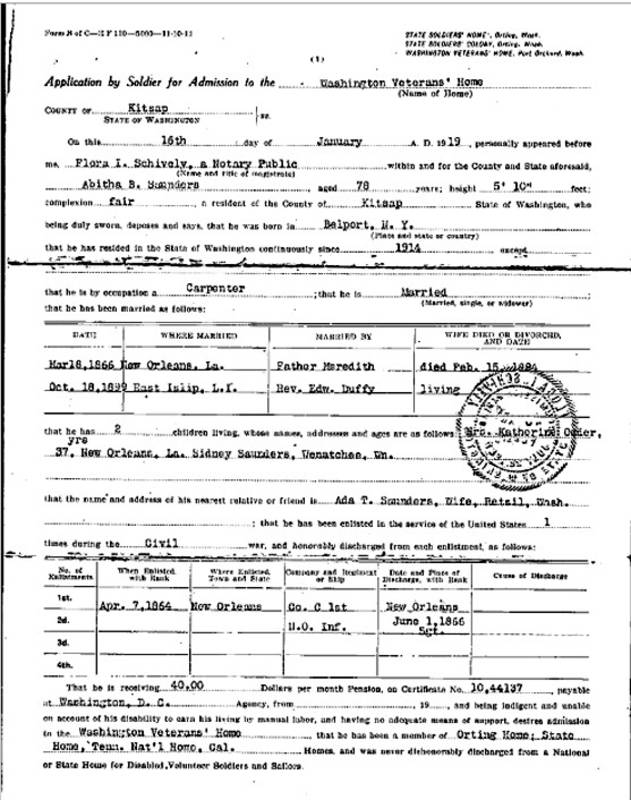 Form B of C—S F 110—5000—11-10-13
STATE SOLDIERS' HOME', Orting, Wash.
STATE SOLDIERS' COLONY, Orting, Wash.
WASHINGTON VETERANS' HOME, Port Orchard, Wash.
(1)
Application by Soldier for Admission to the Washington Veterans' Home
(Name of Home)
COUNTY OF Kitsap
STATE OF WASHINGTON } ss.
On this 16th day of January A. D. 1919, personally appeared before
me, Flora I. Schively, a Notary Public within and for the County and State aforesaid,
(Name and title of magistrate)
Abitha B. Saunders aged 78 years; height 5' 10" feet;
complexion fair a resident of the County of Kitsap State of Washington, who
being duly sworn, deposes and says, that he was born in Belport, N. Y.
(Place and state or country)
that he has resided in the State of Washington continuously since 1914 except
that he is by occupation a Carpenter ; that he is Married
(Married, single, or widower)
that he has been married as follows:
DATE WHERE MARRIED MARRIED BY WIFE DIED OR DIVORCED, AND DATE
Mar18,1866 New Orleans, La. Father Meredith died Feb. 15,
Oct. 18,1899 East Islip, L.I. Rev. Edw. Duffy living
that he has 2 children living, whose names, addresses and ages are as follows: Mrs. Katherine
yrs
37, New Orleans, La. Sidney Saunders, Wenatchee, Wn.
that the name and address of his nearest relative or friend is Ada T. Saunders, Wife, Retsil, Wash.
; that he has been enlisted in the service of the United States 1
times during the Civil war, and honorably discharged from each enlistment, as follows:
No. of Enlistments When Enlisted, with Rank Where Enlisted, Town and State Company and Regiment or Ship Date and Place of Discharge, with Rank Cause of Discharge
1st. Apr. 7,1864 New Orleans Co. C 1st New Orleans
2d. N.O. Inf. June 1,1866
Sgt.
3d.
4th.
That he is receiving 40.00 Dollars per month Pension, on Certificate No. 10,44137 payable
at Washington, D. C. Agency, from 19 , and being indigent and unable
on account of his disability to earn his living by manual labor, and having no adequate means of support, desires admission
to the Washington Veterans' Home that he has been a member of Orting Home; State
Home, Tenn. Nat'l Home, Cal. Homes, and was never dishonorably discharged from a National
or State Home for Disabled Volunteer Soldiers and Sailors.